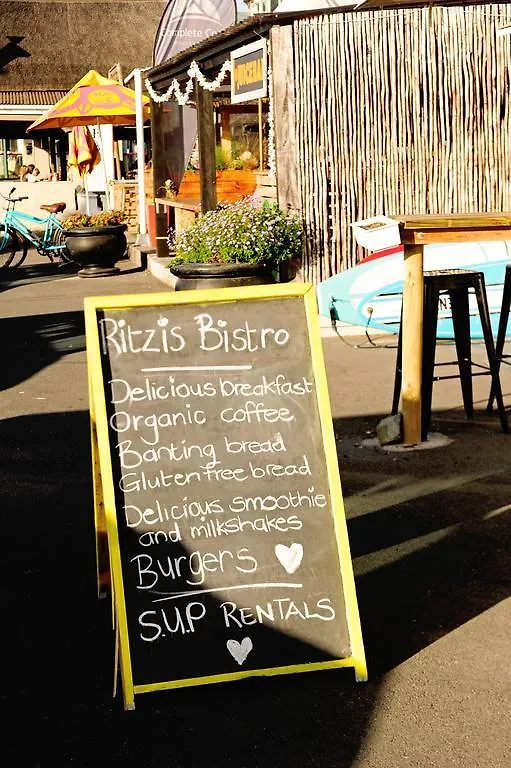 Complete Co
JUICEBAR
Ritzis Bistro
Delicious breakfast
Organic coffee
Banting bread
Glutenfree bread
Delicious smoothie
and milkshakes
Burgers
S.U.P RENTALS